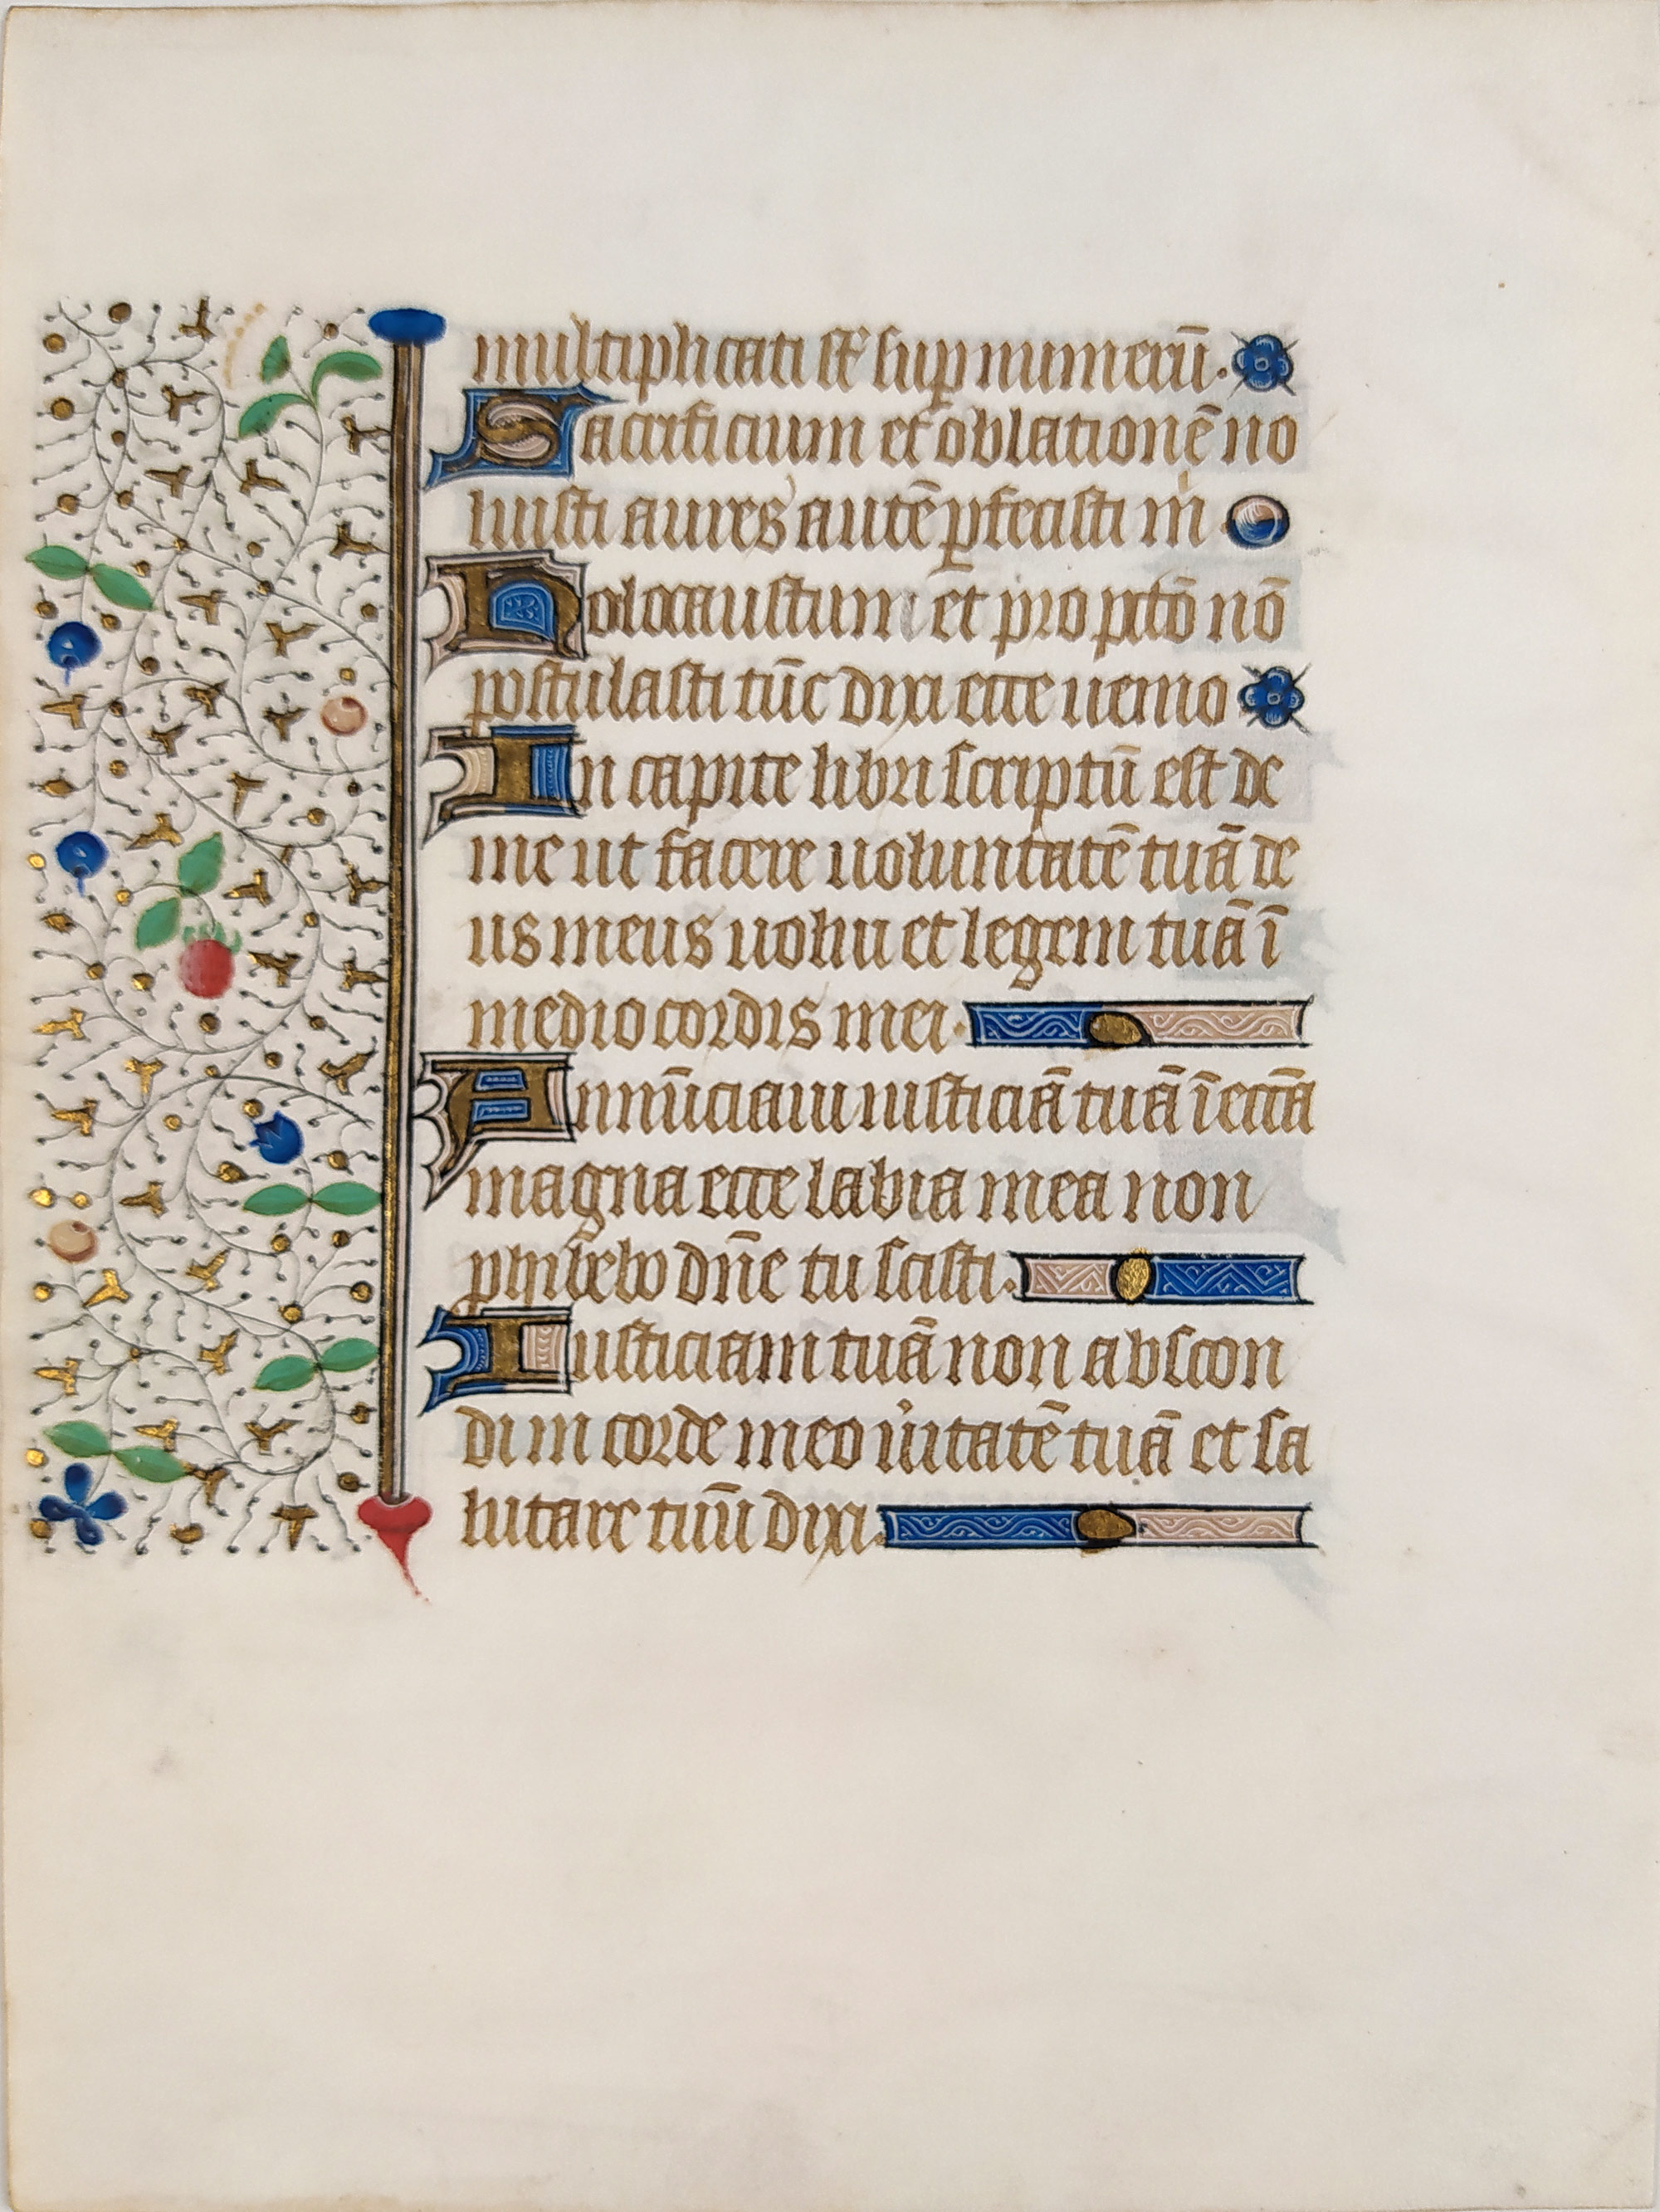 multiplicati st̄ sup̲ numerū.
Sacrificium et oblationē no
luisti aures autē p̲fecisti m̍
Holocaustum et pro pctō nō
postulasti tūc dixi ecce uenio
In capite libri scriptū est de
me ut facere uoluntatē tuā de
us meus uolui et legem tuā ī
medio cordis mei.
Annūciaui iusticiā tuā ī eccīa
magna ecce labia mea non
phībebo dn̄e tu scisti.
Iusticiam tuā non abscon
di in corde meo u̍itatē tuā et sa
lutare tuū dixi.